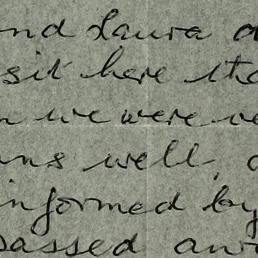 and Laura a
sit here tha
n we were ve
ns well, a
informed by
passed awa